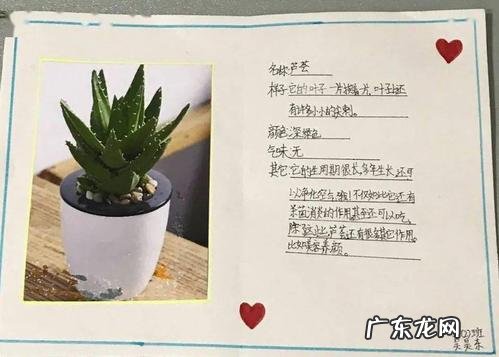 名称芦荟
样子它的叶子一片挨着一片,叶子上还
有许多小小的尖刺。
颜色深绿色
气味无
其它它的生周期很长,多年生长,还可
以净化空气,哦!不仅如此它还有
杀菌消炎的作用,甚至还可以吃,
除此芦荟还有很多其它作用。
比如美容养颜。
班
吴昊东
广东龙网